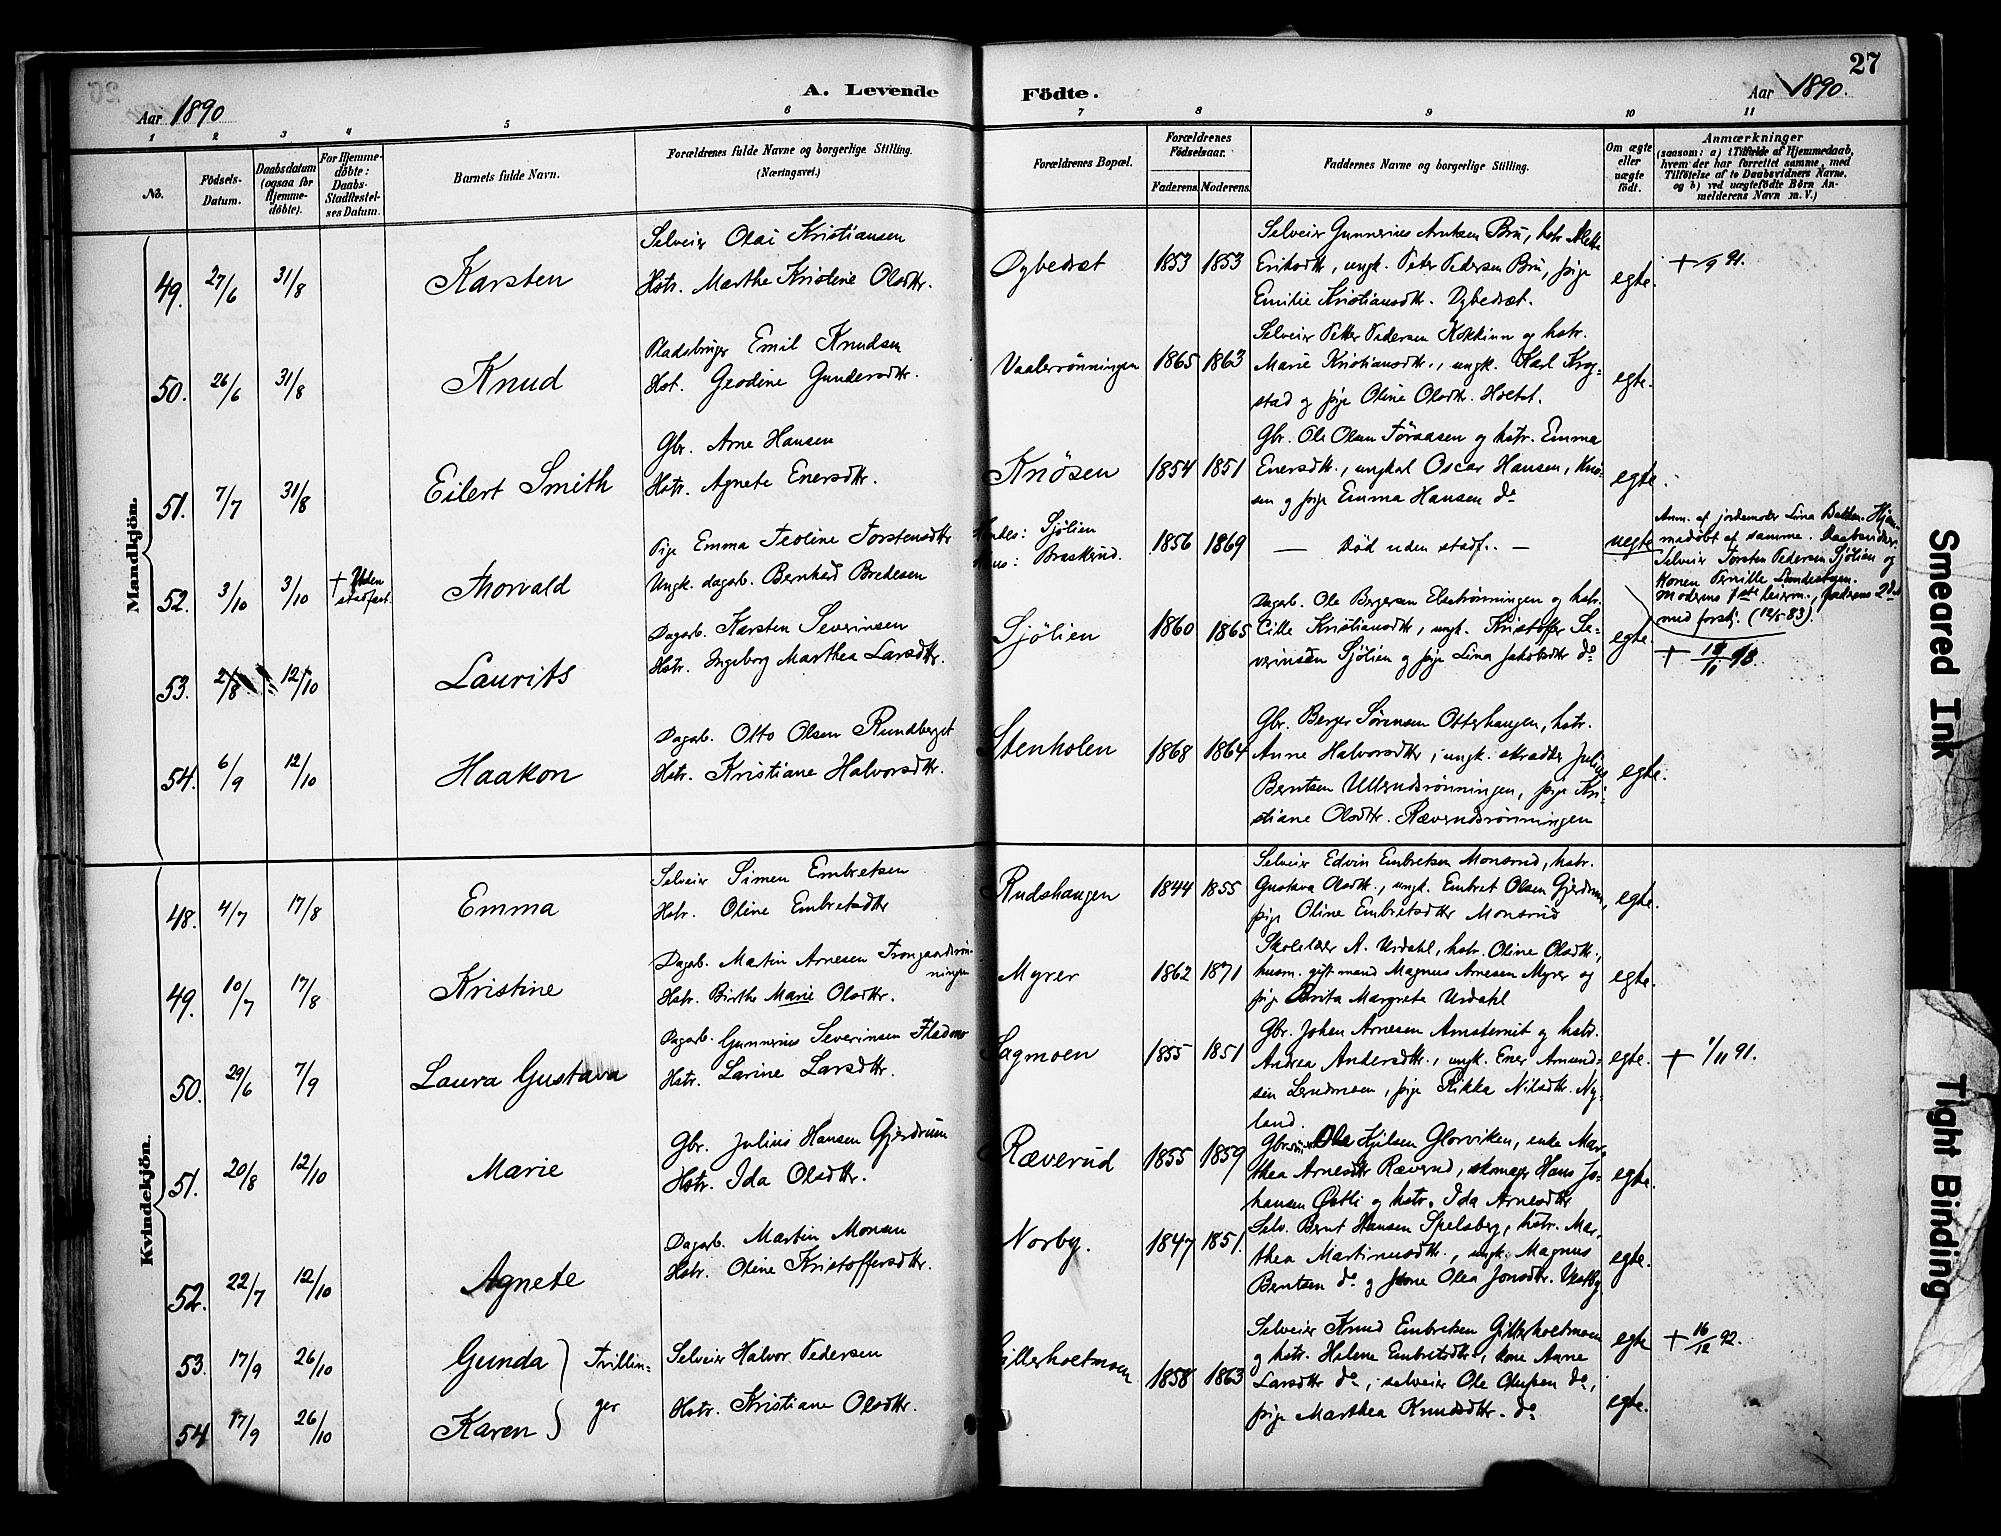 27
Aar 1890
A. Levende Födte.
Aar 1890.
1 2 3 4 5 6 7 8 9 10 11
No.
Födsels-Datum.
Daabsdatum (ogsaa for Hjemmedöbte).
For Hjemmedöbte: Daabs-Stadfæstelses Datum.
Barnets fulde Navn.
Forældrenes fulde Navne og borgerlige Stilling. (Næringsvei.)
Forældrenes Bopæl.
Forældrenes Födselsaar.
Faderens. Moderens.
Faddernes Navne og borgerlige Stilling.
Om ægte eller uægte født.
Anmærkninger
(saasom: a) i Tilfælde af Hjemmedaab, hvem der har forrettet samme, med Tilföielse af to Daabsvidners Navne, og b) ved uægtefödte Börn Anmelderens Navn m. V.)
Mandkjön.
49. 27/6 31/8 Karsten
Selveier Olai Kristiansen
Hstr. Marthe Kristine Olsdtr.
Dybedræt 1853 1853
Selveier Gunnerius Arntsen Bru, hstr. Mette
Eriksdtr., ungk. Peter Pedersen Bru, pige
Emilie Kristiansdtr. Dybedræt.
egte.
+ /9 91.
50. 26/6 31/8 Knud
Pladsbruger Emil Knudsen
Hst. Geodine Gundersdtr.
Vaalerrønningen 1865 1863
Selveier Petter Pedersen Kokkinn og hstr.
Marie Kristiansdtr., ungk. Karl Krog-
stad og pige Oline Olsdtr. Holtet.
egte.
51. 7/7 31/8 Eilert Smith
Gbr. Arne Hansen
Hstr. Agnete Enersdtr.
Knøsen 1854 1851
Gbr. Ole Olsen Føraasen og hstr. Emma
Enersdtr., ungkal Oscar Hansen, Knø-
sen og pige Emma Hansen do
egte.
52. 3/10 3/10 + Uden stadfæst. Thorvald
Pige Emma Teoline Torstensdtr
Ungk. dagarb. Bernhard Bredesen
Hendes: Sjølien
Hans: Braskerud.
1856 1869
— Død uden stadf. —
uegte
Anm. af jordemoder Lina Bakken. Hjem-
medøbt af samme. Daabsvidner:
Selveier Torsten Pedersen Sjølien og
Konen Pernille Lundestøen.
Moderens 1ste leierm., faderens 2det
med forskj. (12/5 83).
53. 2/8 12/10 Laurits
Dagarb. Karsten Severinsen
Hstr. Ingeborg Marthea Larsdtr.
Sjølien 1860 1865
Dagarb. Ole Bergersen Elsetrønningen og hstr.
Cille Kristiansdtr, ungk. Kristoffer Se-
verinsen Sjølien og pige Lina Jakobsdtr do
egte.
54. 6/9 12/10 Haakon
Dagarb. Otto Olsen Rundberget
Hstr. Kristiane Halvorsdtr.
Stenholen 1868 1864
Gbr. Berger Sørensen Otterhaugen, hstr.
Anne Halvorsdtr, ungk. skrædder Julius
Berntsen Ullerudsrønningen, pige Kri-
stiane Olsdtr. Ræverudsrønningen
egte.
Kvindekjön.
48. 4/7 17/8 Emma
Selveier Simen Embretsen
Hstr. Oline Embretsdtr
Rudshaugen 1844 1855
Selveier Edvin Embretsen Monsrud, hstr.
Gustava Olsdtr., ungk. Embret Olsen Gjerdrum,
pige Oline Embretsdtr Monsrud
egte.
49. 10/7 17/8 Kristine
Dagarb. Martin Arnesen Trongaardsrøn-
ningen
Hstr. Birthe Marie Olsdtr.
Myrer 1862 1871
Skolelær A. Urdahl, hstr. Oline Olsdtr.,
husm. gift mand Magnus Arnesen Myrer og
pige Brita Margrete Urdahl
egte.
50. 29/6 7/9 Laura Gustava
Dagarb. Gunnerius Severinsen Fladmo
Hstr. Larine Larsdtr.
Sagmoen 1855 1851
Gbr. Johan Arnesen Arnsternit og hstr.
Andrea Andersdtr., ungk. Ener Amund-
sen Lerudmoen, pige Rikka Nilsdtr. Ny-
land.
egte.
+ 1/11 91.
51. 20/8 12/10 Marie
Gbr. Julius Hansen Gjerdrum
Hstr. Ida Olsdtr.
Ræverud 1855 1859
Ole Kjilsen Glorviken, enke Mar-
thea Arnesdtr Ræverud, skomager Hans Jo-
hansen Østli og hstr. Ida Arnesdtr
egte.
52. 22/7 12/10 Agnete
Dagarb. Martin Monsen
Hstr. Oline Kristoffersdtr.
Norby. 1847 1851.
Selv. Bernt Hansen Spelsberg, hstr. Mar-
thea Martinusdtr., ungk. Magnus
Berntsen do og kone Olea Jonsdtr. Vestby
egte.
53. 17/9 26/10 Gunda
54 17/9 26/10 Karen
Tvillin-
ger
Selveier Halvor Pedersen
Hstr. Kristiane Olsdtr.
Gillerholtmoen 1858 1863
Selveier Knud Embretsen Gillerholtmoen
og hstr. Helene Embretsdtr, kone Anne
Larsdtr do, selveier Ole Olufsen do,
pige Marthea Knudsdtr. do
egte
egte.
+ 16/12 92.
Smeared Ink
Tight Binding